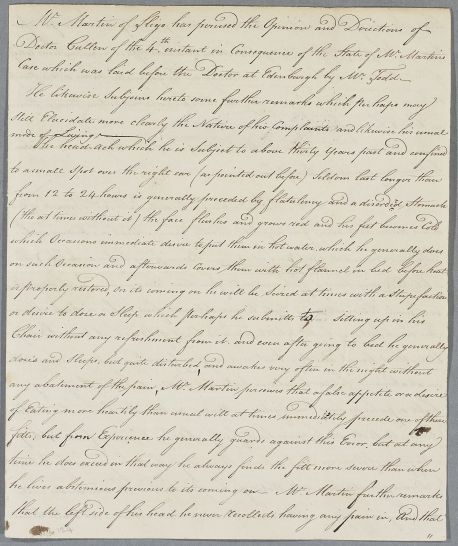 Mr. Martin of Sligo has perused the Opinion and Directions of
Doctor Cullen of the 4th. instant in Consequence of the State of Mr. Martins
Case which was laid before the Doctor at Edenburgh by Mr. Tedd
He likewise Subjoins hereto some further remarks which perhaps may
still Elucidate more clearly the Nature of his Complaints and likewise his usual
mode of Living
The head ach which he is Subject to above thirty Years past and confined
to a small Spot over the right eare (as pointed out before) Seldom last longer than
from 12 to 24 hours is generally preceded by flatulency and a disorder'd Stomach
(tho' at times without it) the face flushes and grows red and his feet becomes Cold
which Occasions immediate desire to put them in hot water, which he generally does
on such Occasion and afterwards Covers them with hot flannel in bed before heat
is properly restored, on its coming on he will be Seized at times with a Stupefaction
or desire to dose a Sleep which perhaps he submitts to sitting up in his
Chair without any refreshment from it, and even after going to bed he generally
doses and Sleeps, but quite disturbed and awakes very often in the night without
any abatement of the pain, Mr. Martin perceives that a false appetite or a desire
of Eating more heartily than usual will at times immediately precede one of these
fitts, but from Experience he generally guards against this Error, but at any
time he does exceed in that way he always finds the fitt more severe than when
he lives abstemious previous to its coming on Mr. Martin further remarks
that the left side of his head he never recollects having any pain in, And that